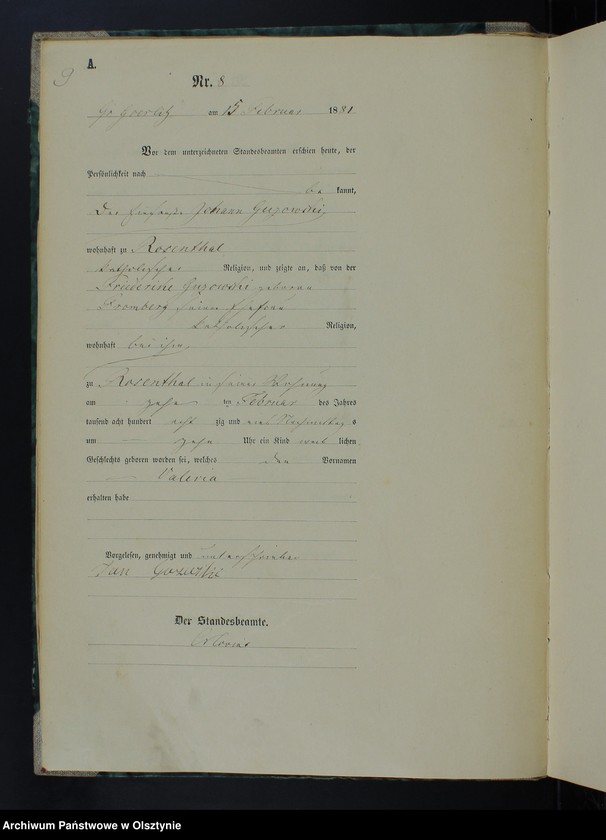 9
A.
Nr. 8
Gr Goerlitz am 15 Februar 1881
Vor dem unterzeichneten Standesbeamten erschien heute, der
Persönlichkeit nach
be kannt,
Der Johann Guzowski,
wohnhaft zu Rosenthal
katholischer Religion, und zeigte an, daß von der
Friederike Guzowski geborene
Bromberg seiner Ehefrau
katholischer Religion,
wohnhaft bei ihm,
zu Rosenthal in seiner Wohnung
am zehn ten Februar des Jahres
tausend acht hundert acht zig und eins Nachmittag s
um zehn Uhr ein Kind weib lichen
Geschlechts geboren worden sei, welches den Vornamen
Valeria
erhalten habe
Vorgelesen, genehmigt und unterschrieben
Jan Gozewski
Der Standesbeamte.
Archiwum Państwowe w Olsztynie